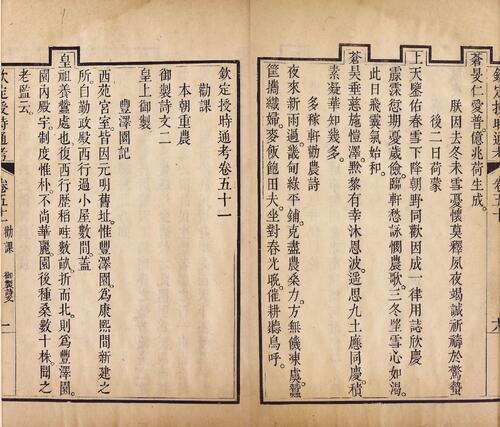 蒼旻仁愛普。億兆荷生成。
朕因去冬未雪憂懷莫釋夙夜竭誠祈禱於驚蟄
後二日荷蒙
上天鑒佑春雪下降朝野同歡因成一律用誌欣慶
霡霂愆期憂歲儉。臨軒愁詠憫農歌。三冬望雪心如渴。
此日飛霙氣始和。
蒼昊垂慈施愷澤。黔黎有幸沐恩波。遥思九土應同慶。積
素凝華知幾多。
多稼軒勸農詩
夜來新雨過。畿甸綠平鋪。克盡農桑力。方無饑凍虞。蠶
筐攜織婦。麥飯飽田夫。坐對春光晼。催耕聽鳥呼。
欽定授時通考卷五十一
勸課
本朝重農
御製詩文二
皇上御製
豐澤園記
西苑宮室。皆因元明舊址。惟豐澤園。為康熙間新建之
所。自勤政殿西行。過小屋數間。蓋
皇祖養蠶處也。復西行。歷稻畦數畝。折而北。則為豐澤園。
園內殿宇。制度惟朴。不尚華麗。園後種桑數十株。聞之
老監云。
欽定授時通考
卷五十一 勸課 御製詩文
一